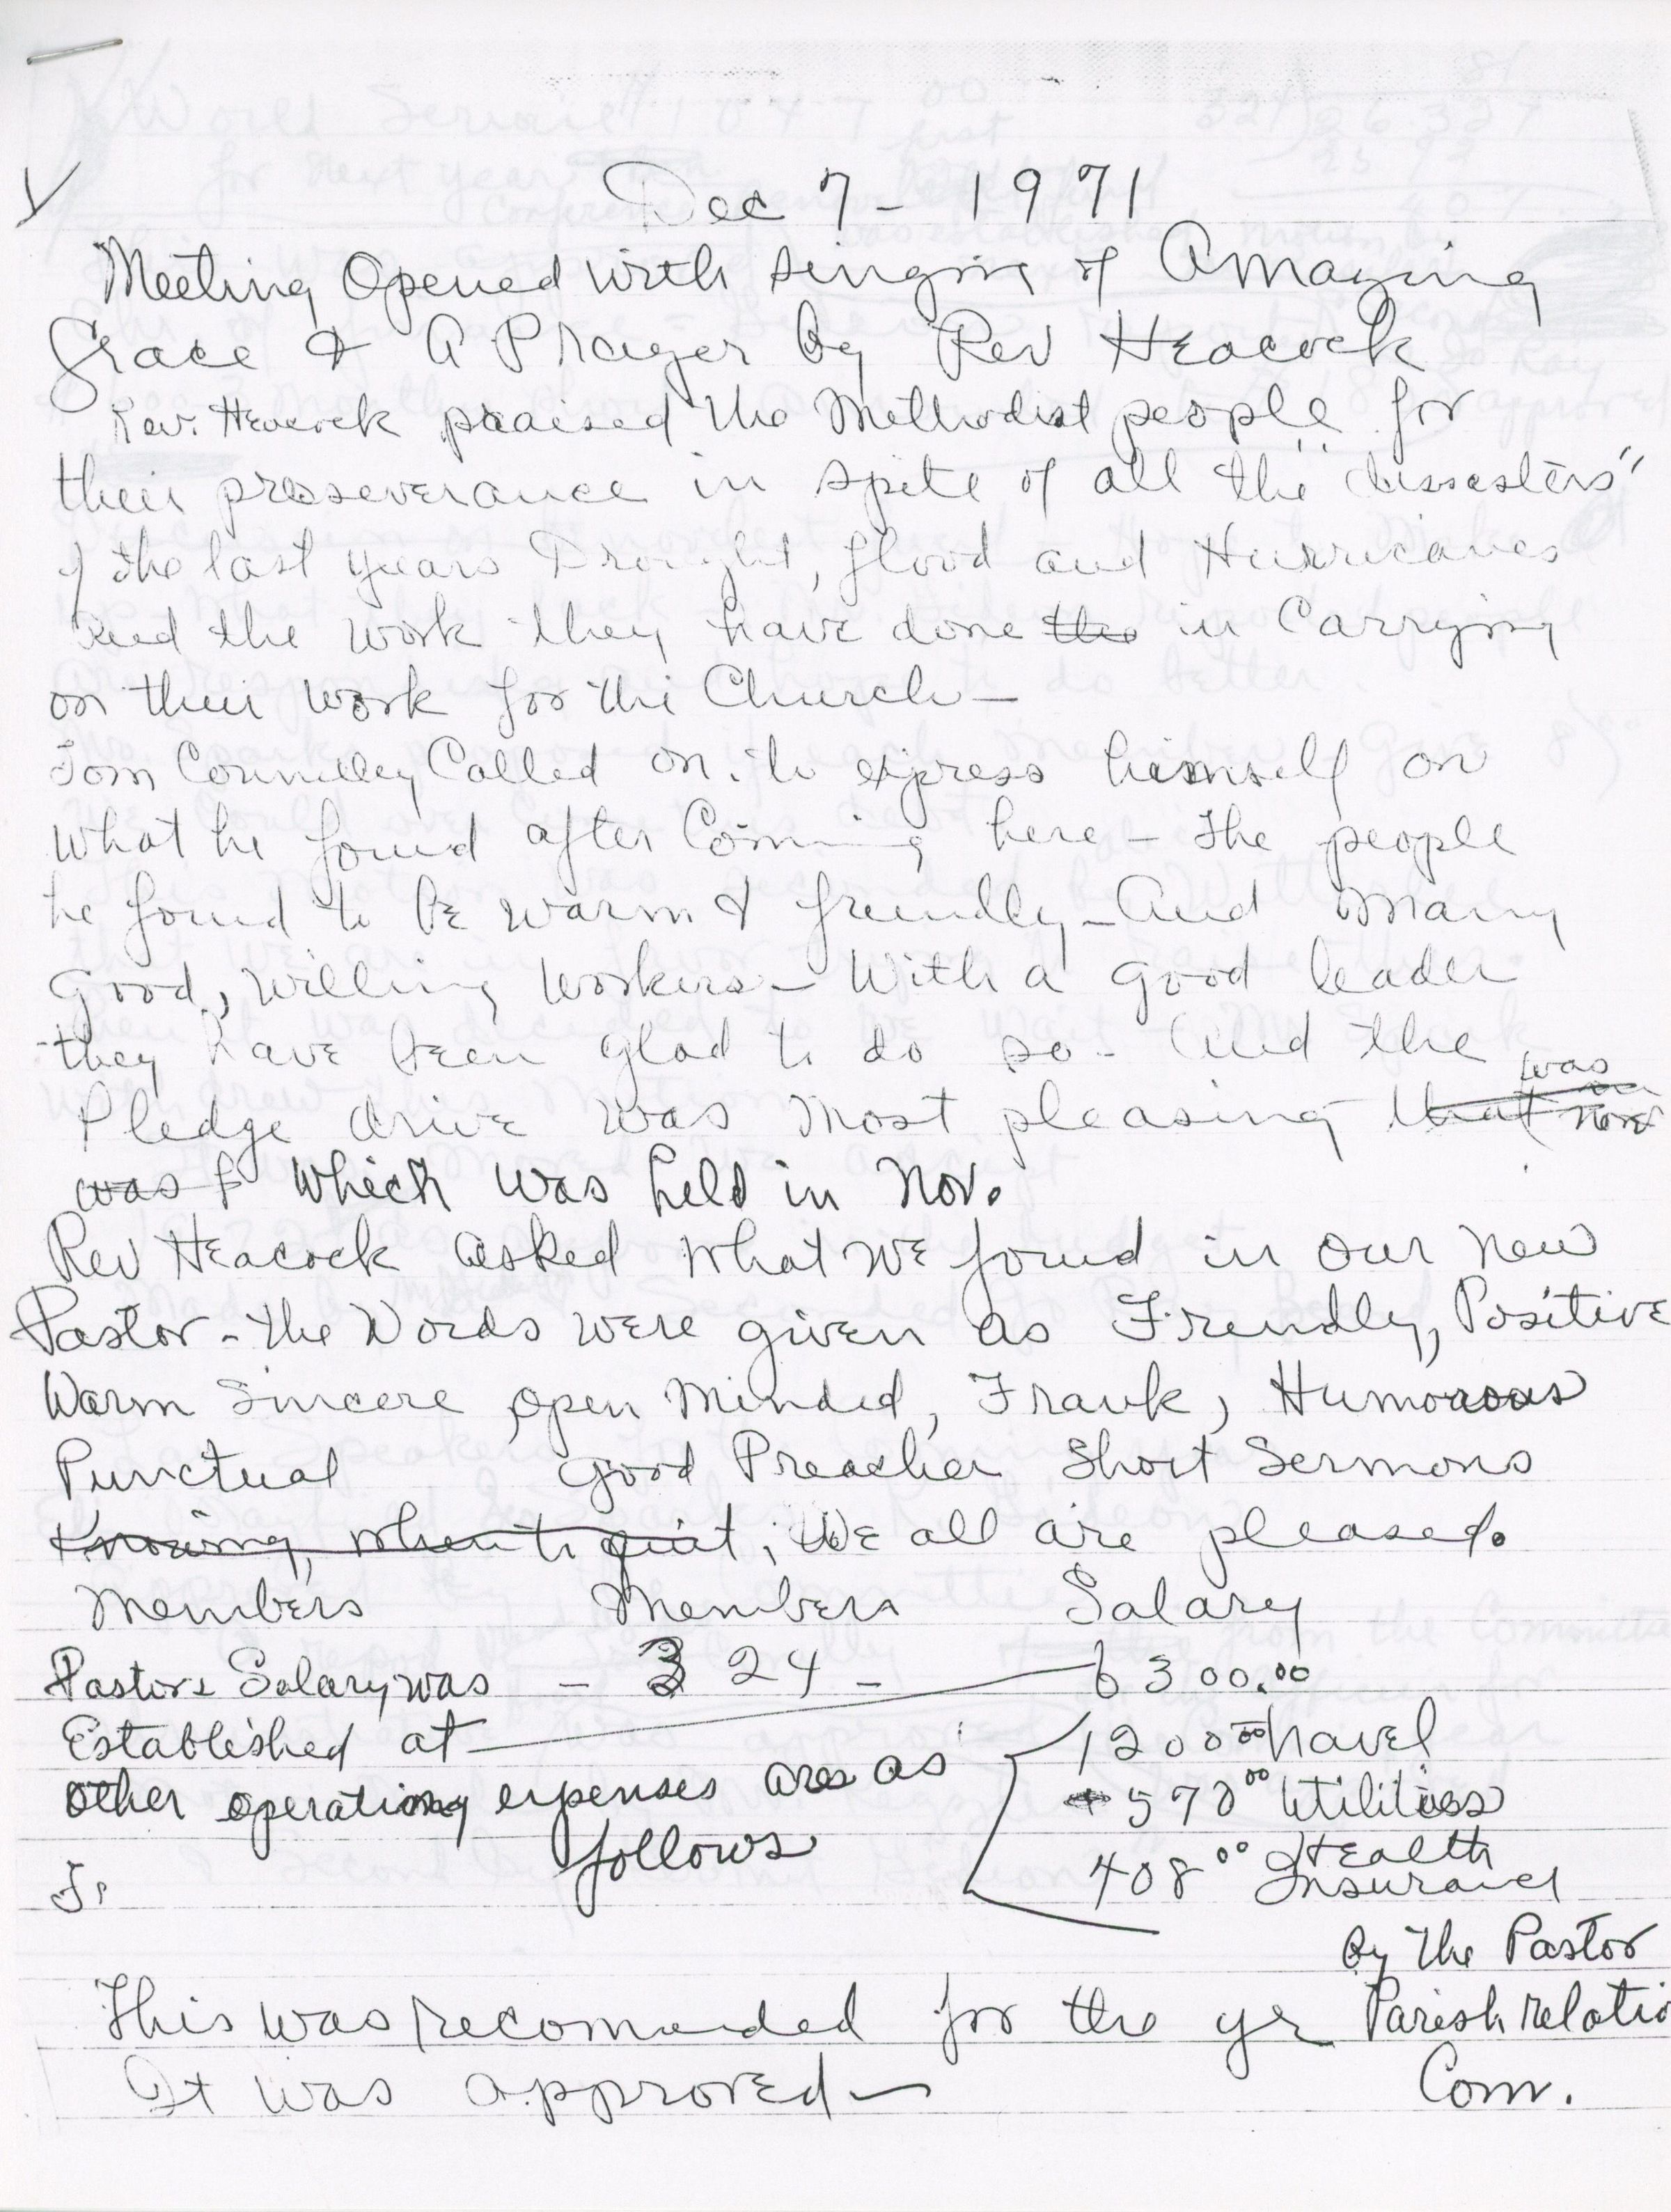 Dec 7 - 1971
Meeting Opened with singing of Amazing
Grace & A Prayer by Rev Heacock
Rev. Heacock praised the Methodist people for
their preseverance in spite of all the "dissesters"
of the last years Drought, flood and Hurricanes
and the work they have done the in Carrying
on their work for the Church—
Tom Counelley Called on. to express himself on
what he found after Coming here - The people
he found to be warm & friendly - And Many
good, willing workers - With a good leader
they have been glad to do so - And the
was
Pledge drive was Most pleasing that
was f which was held in Nov.
Rev Heacock asked what we found in our new
Pastor - the Words were given as Friendly, Positive
Warm Sincere open Minded, Frank, Humorous
Punctual good Preacher Short Sermons
Knowing, when to quit; We all are pleased.
Members Members Salary
Pastors Salary was - 324 - 6300.00
Established at 1200 00 travel
other operating expenses are as 570 00 Utilities
follows 408 00 Health
J. Insurance
by the Pastor
This was recomended for the yr Parish relatio
It was approved— Com.